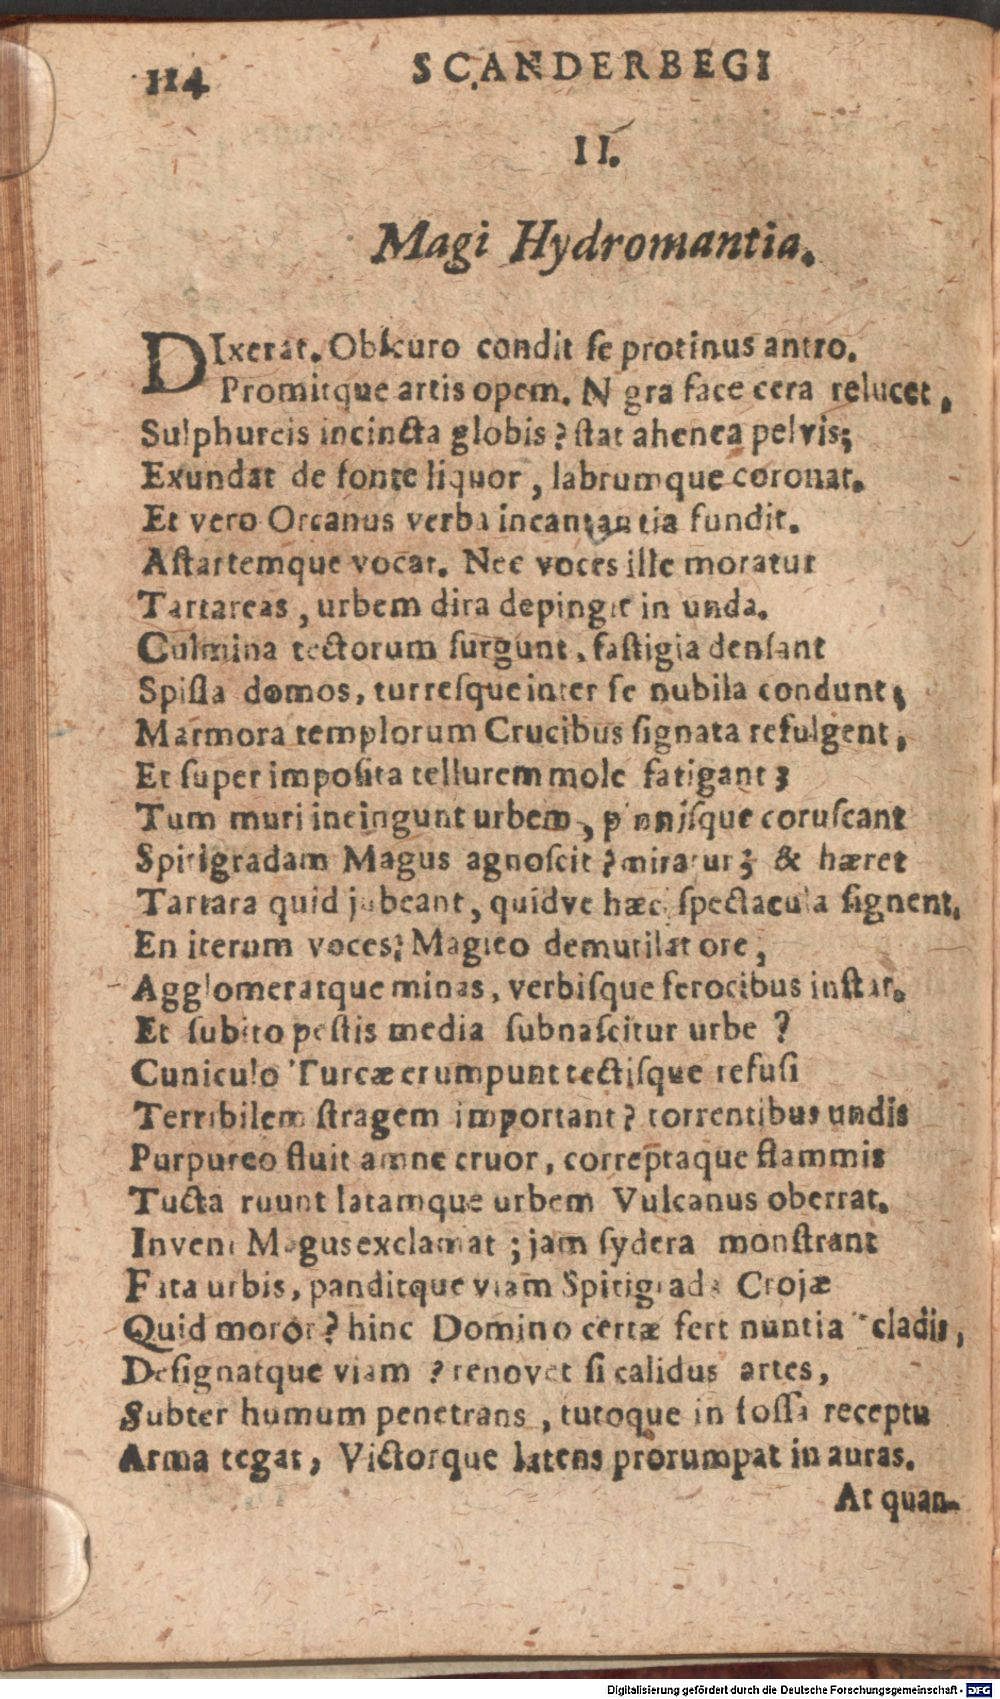 114 SCANDERBEGI
II.
Magi Hydromantia.
DIxerat. Obscuro condit se protinus antro.
Promitque artis opem. N gra face cera relucet,
Sulphureis incincta globis? stat ahenea pelvis;
Exundat de fonte liquor, labrumque coronat.
Et vero Orcanus verba incantantia fundit.
Astartemque vocat. Nec voces ille moratur
Tartareas, urbem dira depingit in unda.
Culmina tectorum surgunt, fastigia densant
Spissa domos, turresque inter se nubila condunt;
Marmora templorum Crucibus signata refulgent,
Et super imposita tellurem mole fatigant;
Tum muri incingunt urbem, pinnisque coruscant
Spitigradam Magus agnoscit? miratur; & hæret
Tartara quid jubeant, quidve hæc spectacula signent.
En iterum voces; Magico demutilat ore,
Agglomeratque minas, verbisque ferocibus instat.
Et subito pestis media subnascitur urbe?
Cuniculo Turcæ erumpunt tectisque refusi
Terribilem stragem important? torrentibus undis
Purpureo fluit amne cruor, correptaque flammis
Tucta ruunt latamque urbem Vulcanus oberrat.
Inveni Magus exclamat; jam sydera monstrant
Fata urbis, panditque viam Spitigrada Crojæ
Quid moror? hinc Domino certæ fert nuntia cladis,
Designatque viam? renovet si calidus artes,
Subter humum penetrans, tutoque in fossa receptu
Arma tegat, Victorque latens prorumpat in auras.
At quan-
Digitalisierung gefördert durch die Deutsche Forschungsgemeinschaft - DFG